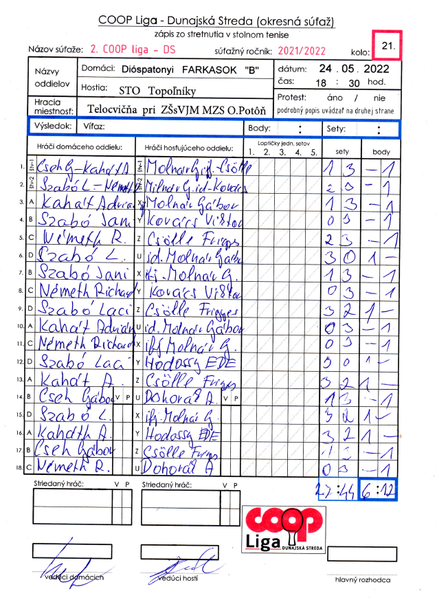 COOP Liga - Dunajská Streda (okresná súťaž)
zápis zo stretnutia v stolnom tenise
Názov súťaže: 2. COOP liga - DS súťažný ročník: 2021/2022 kolo: 21.
Názvy oddielov Domáci: Dióspatonyi FARKASOK "B" dátum: 24.05.2022
Hostia: STO Topoľníky čas: 18:30 hod.
Hracia miestnosť: Telocvičňa pri ZŠsVJM MZS O.Potôň Protest: áno / nie
podrobný popis uvádzať na druhej strane
Výsledok: Víťaz: Body: : Sety: :
Hráči domáceho oddielu: Hráči hosťujúceho oddielu: Loptičky jedn. setov sety body
1. 2. 3. 4. 5.
1. Cseh G-Kahát A Molnár ifj-Csölle 1 3 - 1
2. Szabó L-Németh Molnár id-Kovács - 1
3. A Kahát Adrian X Molnár Gábor 1 3 - 1
4. B Szabó Jani Y Kovács Viktor 0 3 - 1
5. C Németh R. Z Csölle Frigyes 2 3 - 1
6. D Szabó L. U id. Molnár Gábor 3 0 1 -
7. B Szabó Jani X ifj. Molnár G. 1 3 - 1
8. C Németh Richard Y Kovács Viktor 0 3 - 1
9. D Szabó Laci Z Csölle Frigyes 3 2 1 -
10. A Kahát Adrian U id. Molnár Gábor 0 3 - 1
11. C Németh Richard X ifj Molnár G. 0 3 - 1
12. D Szabó Laci Y Hodossy EDE 3 0 1 -
13. A Kahát A. Z Csölle Frigyes 3 2 1 -
14. B Cseh Gábor V P U Dohorál A V P 1 3 - 1
15. D Szabó L. X ifj Molnár G. 3 2 1 -
16. A Kahát A. Y Hodossy EDE 3 2 1 -
17. B Cseh Gábor Z Csölle Frigyes - 1
18. C Németh R. U Dohorál A 0 3 - 1
27 : 44 6 : 12
Striedaný hráč: V P Striedaný hráč: V P
coop
Liga DUNAJSKÁ STREDA
vedúci domácich vedúci hostí hlavný rozhodca